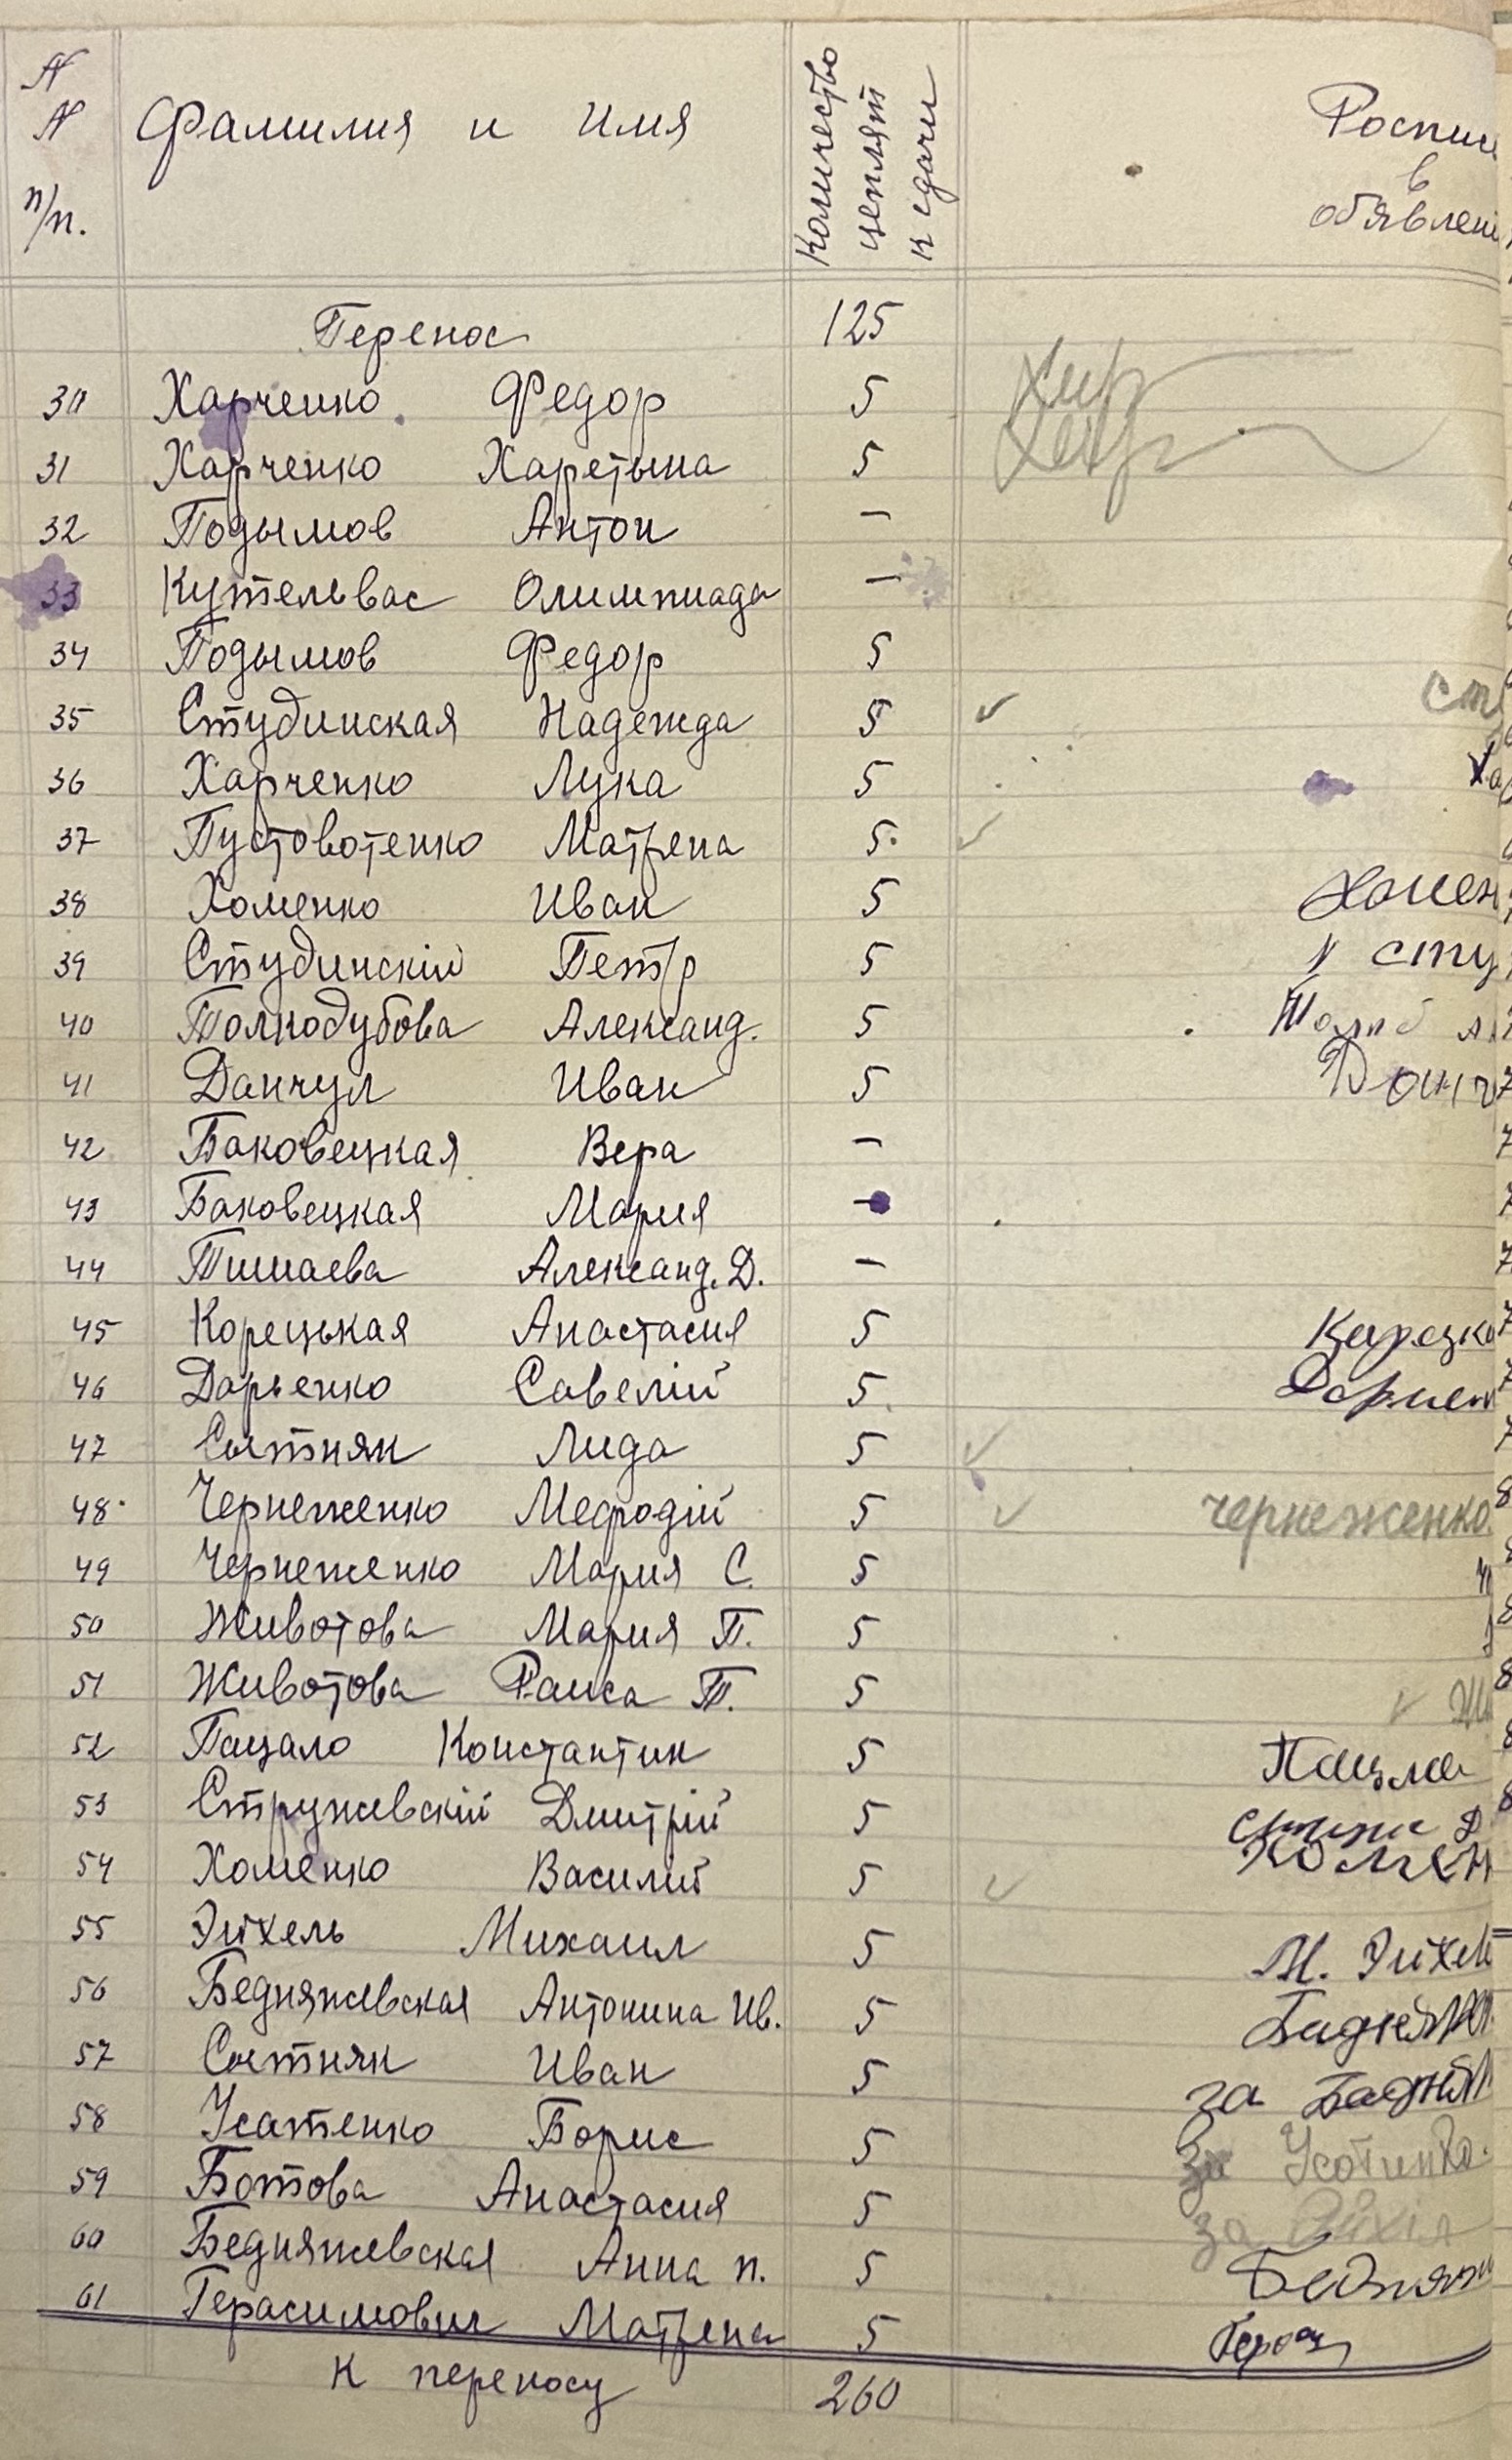 N
N
п/п.
Фамилия и Имя
Количество
цеплят
к сдачи
в
Перенос 125
30 Харченко Федор 5
31 Харченко Харетына 5
32 Подымов Антон —
33 Кутельвас Олимпиада —
34 Подымов Федор 5
35 Студинская Надежда 5 ✓
36 Харченко Лука 5
37 Пустовотенко Матрена 5. ✓
38 Хоменко Иван 5
39 Студинскій Петр 5
40 Толкодубова Александ. 5
41 Данчул Иван 5
42 Баковецкая Вера —
43 Баковецкая Мария —
44 Тишаева Александ. Д. —
45 Корецькая Анастасия 5
46 Дарьенко Савелій 5
47 Сытняк Лида 5 ✓
48 Чернеженко Мефодій 5 ✓ чернеженко
49 Чернеженко Мария С. 5
50 Животова Мария П. 5
51 Животова Раиса Т. 5 ✓
52 Пацало Константин 5
53 Стружевскій Дмитрій 5
54 Хоменко Василий 5 ✓
55 Эйхель Михаил 5 М.
56 Бедняжевская Антонина Ив. 5
57 Сытняк Иван 5 за
58 Усатенко Борис 5 за
59 Ботова Анастасия 5 за
60 Бедняжевская Анна П. 5
61 Герасимович Матрена 5
К переносу 260